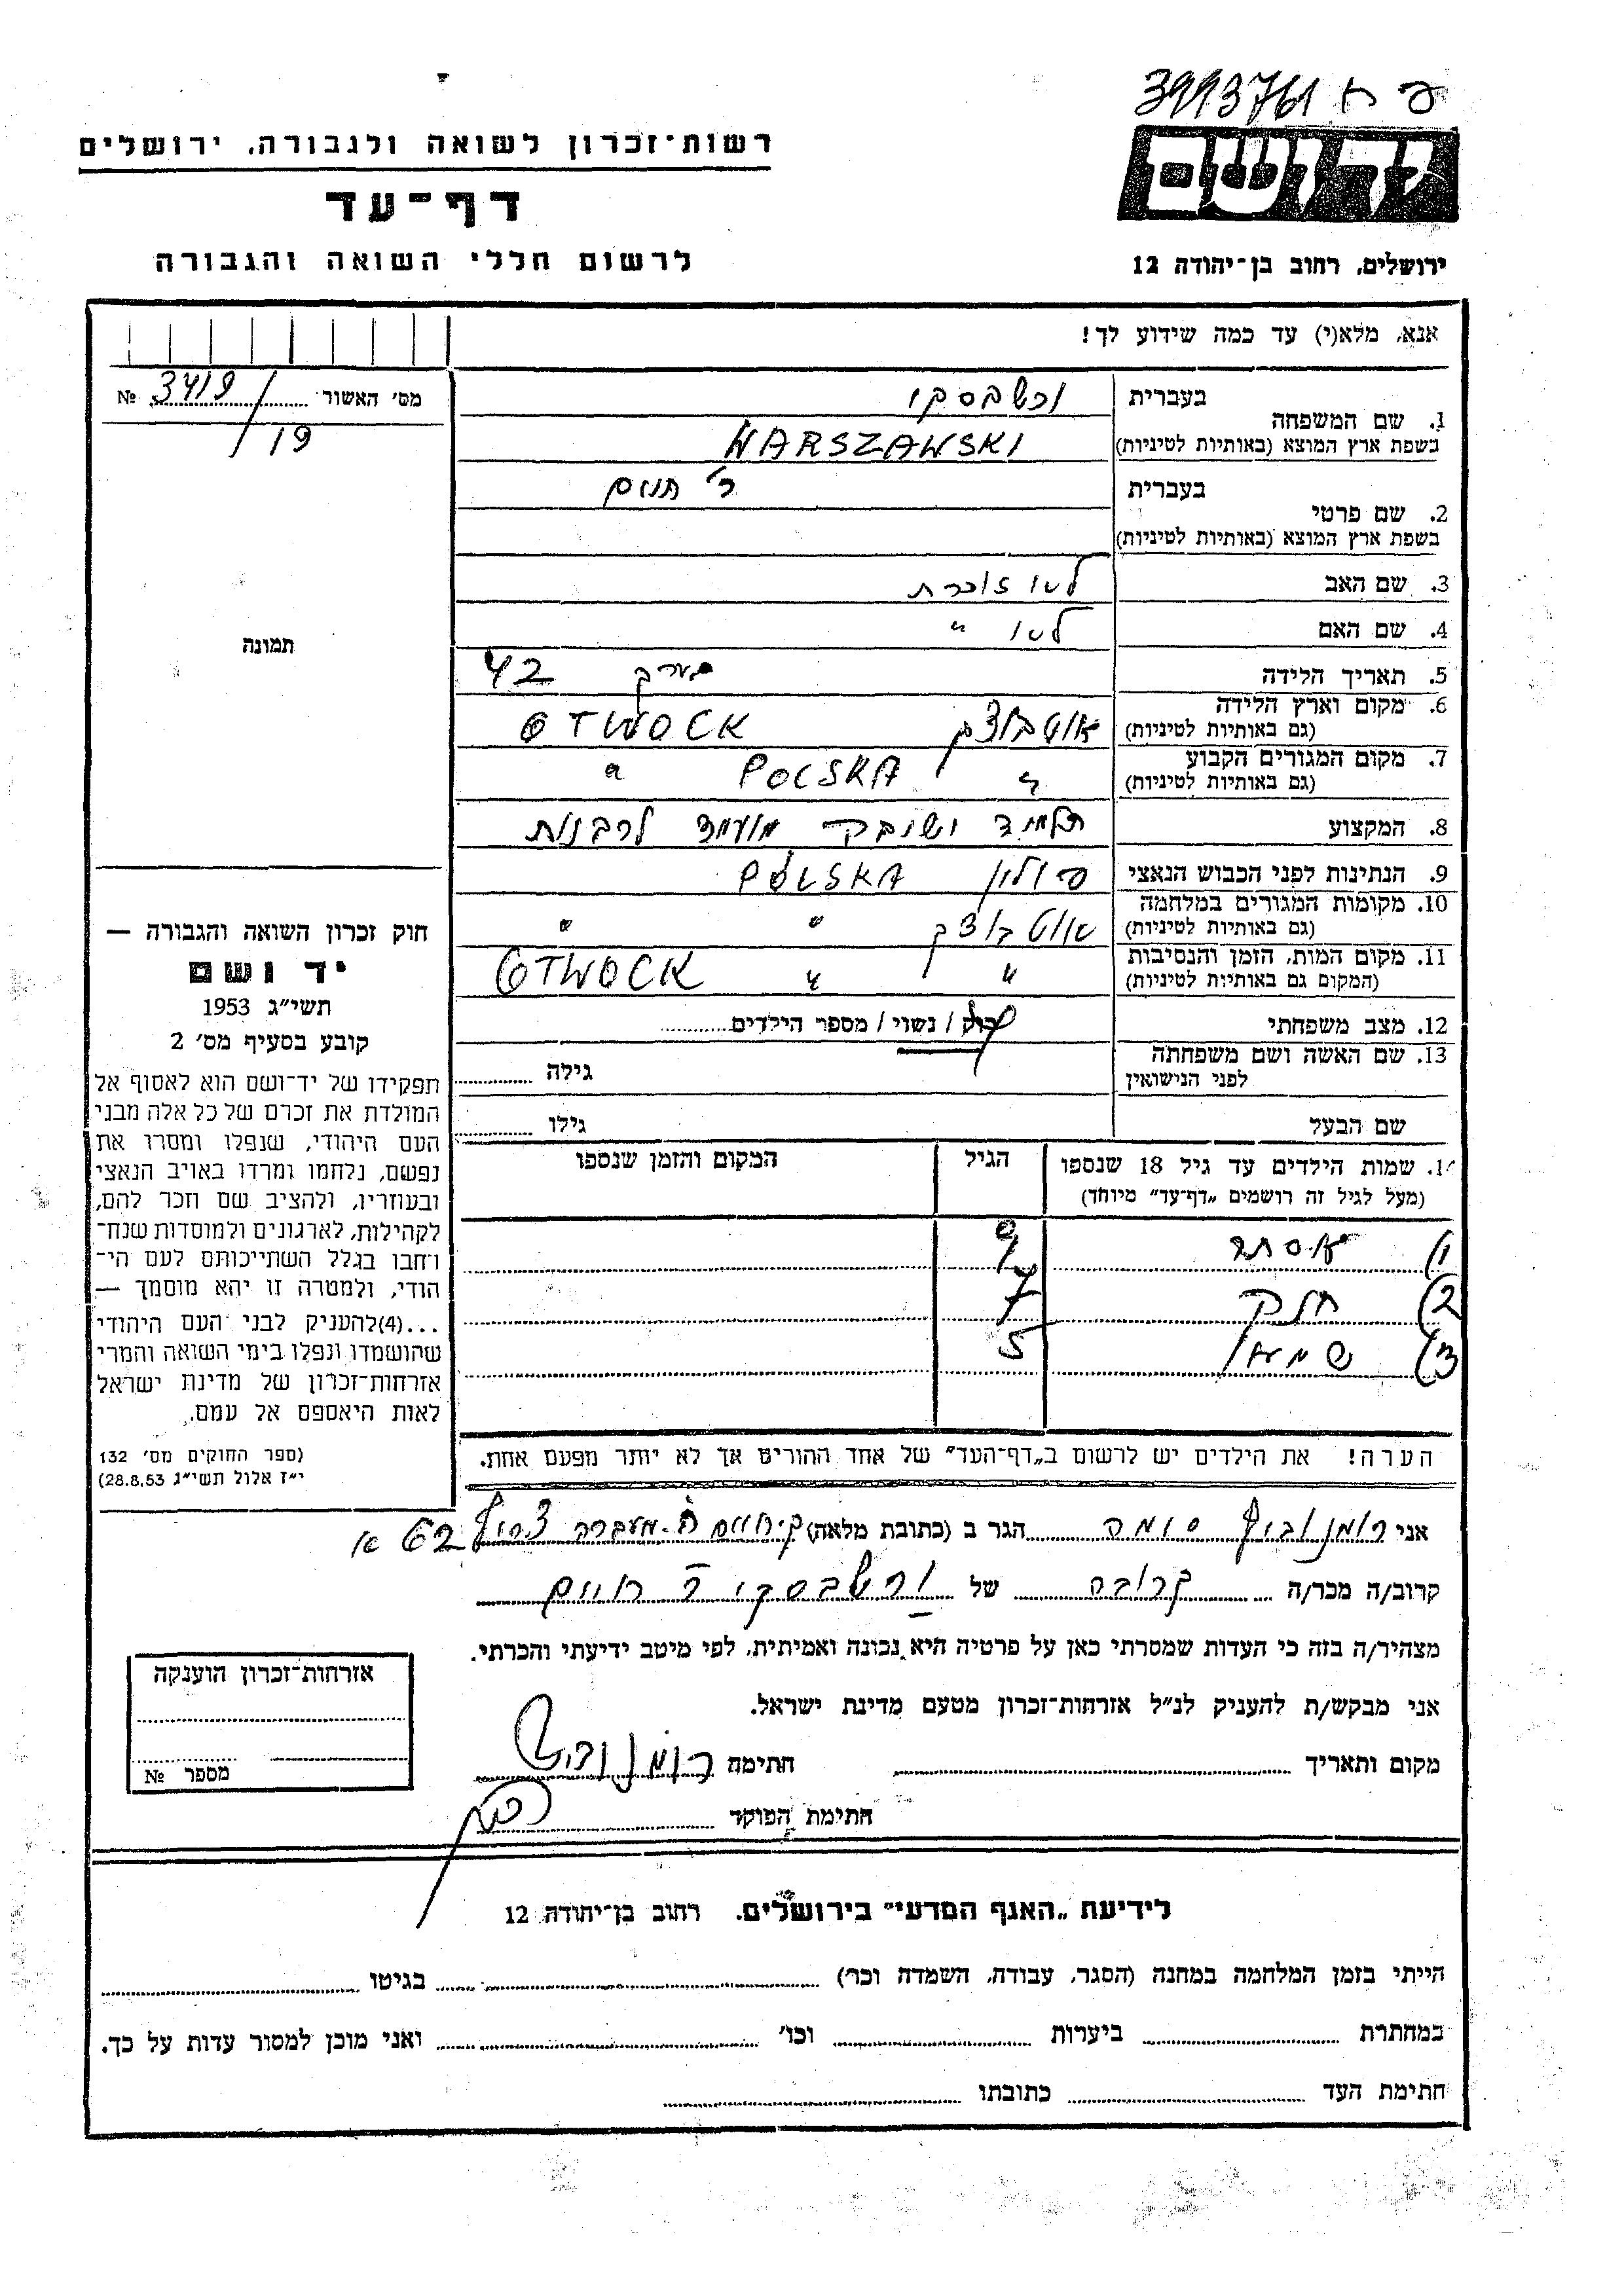 פ ח 3993761
רשות־זכרון לשואה ולגבורה, ירושלים
יד ושם
דף־עד
לרשום חללי השואה והגבורה
ירושלים, רחוב בן־יהודה 12
אנא, מלא(י) עד כמה שידוע לך!
מס' האשור № 3419/
19
1. שם המשפחה
בעברית ורשבסקי
בשפת ארץ המוצא (באותיות לטיניות) WARSZAWSKI
2. שם פרטי
בעברית ר' חיים
בשפת ארץ המוצא (באותיות לטיניות)
3. שם האב לא זוכרת
4. שם האם לא "
5. תאריך הלידה בערך 42
6. מקום וארץ הלידה (גם באותיות לטיניות) אוטבוצק OTWOCK
7. מקום המגורים הקבוע (גם באותיות לטיניות) " POLSKA "
8. המקצוע תלמיד ישובק מועמד לרבנות
9. הנתינות לפני הכבוש הנאצי פולין POLSKA
10. מקומות המגורים במלחמה (גם באותיות לטיניות) אוטבוצק " "
11. מקום המות, הזמן והנסיבות (המקום גם באותיות לטיניות) " " OTWOCK
12. מצב משפחתי רוק / נשוי / מספר הילדים
13. שם האשה ושם משפחתה לפני הנישואין גילה
שם הבעל גילו
14. שמות הילדים עד גיל 18 שנספו הגיל המקום והזמן שנספו
(מעל לגיל זה רושמים „דף־עד" מיוחד)
1) אסתר 9
2) חנק 7
3) שמאי 5
הערה! את הילדים יש לרשום ב„דף־העד" של אחד ההורים אך לא יותר מפעם אחת.
תמונה
חוק זכרון השואה והגבורה —
יד ושם
תשי״ג 1953
קובע בסעיף מס' 2
תפקידו של יד־ושם הוא לאסוף אל
המולדת את זכרם של כל אלה מבני
העם היהודי, שנפלו ומסרו את
נפשם, נלחמו ומרדו באויב הנאצי
ובעוזריו, ולהציב שם וזכר להם,
לקהילות, לארגונים ולמוסדות שנח־
רחבו בגלל השתייכותם לעם הי־
הודי, ולמטרה זו יהא מוסמך —
...(4)להעניק לבני העם היהודי
שהושמדו ונפלו בימי השואה והמרי
אזרחות־זכרון של מדינת ישראל
לאות היאספם אל עמם.
(ספר החוקים מס' 132
י״ז אלול תשי״ג 28.8.53)
אני רומנוביץ סומה הגר ב (כתובת מלאה) ק. חיים מעברה צריף 62 א
קרוב/ה מכר/ה קרובה של ורשבסקי ר חיים
מצהיר/ה בזה כי העדות שמסרתי כאן על פרטיה היא נכונה ואמיתית, לפי מיטב ידיעתי והכרתי.
אני מבקש/ת להעניק לנ״ל אזרחות־זכרון מטעם מדינת ישראל.
מקום ותאריך חתימה רומנוביץ
חתימת הפוקד
אזרחות־זכרון הוענקה
מספר №
לידיעת „האגף המדעי" בירושלים. רחוב בן־יהודה 12
הייתי בזמן המלחמה במחנה (הסגר, עבודה, השמדה וכר) בגיטו
במחתרת ביערות וכו' ואני מוכן למסור עדות על כך.
חתימת העד כתובתו